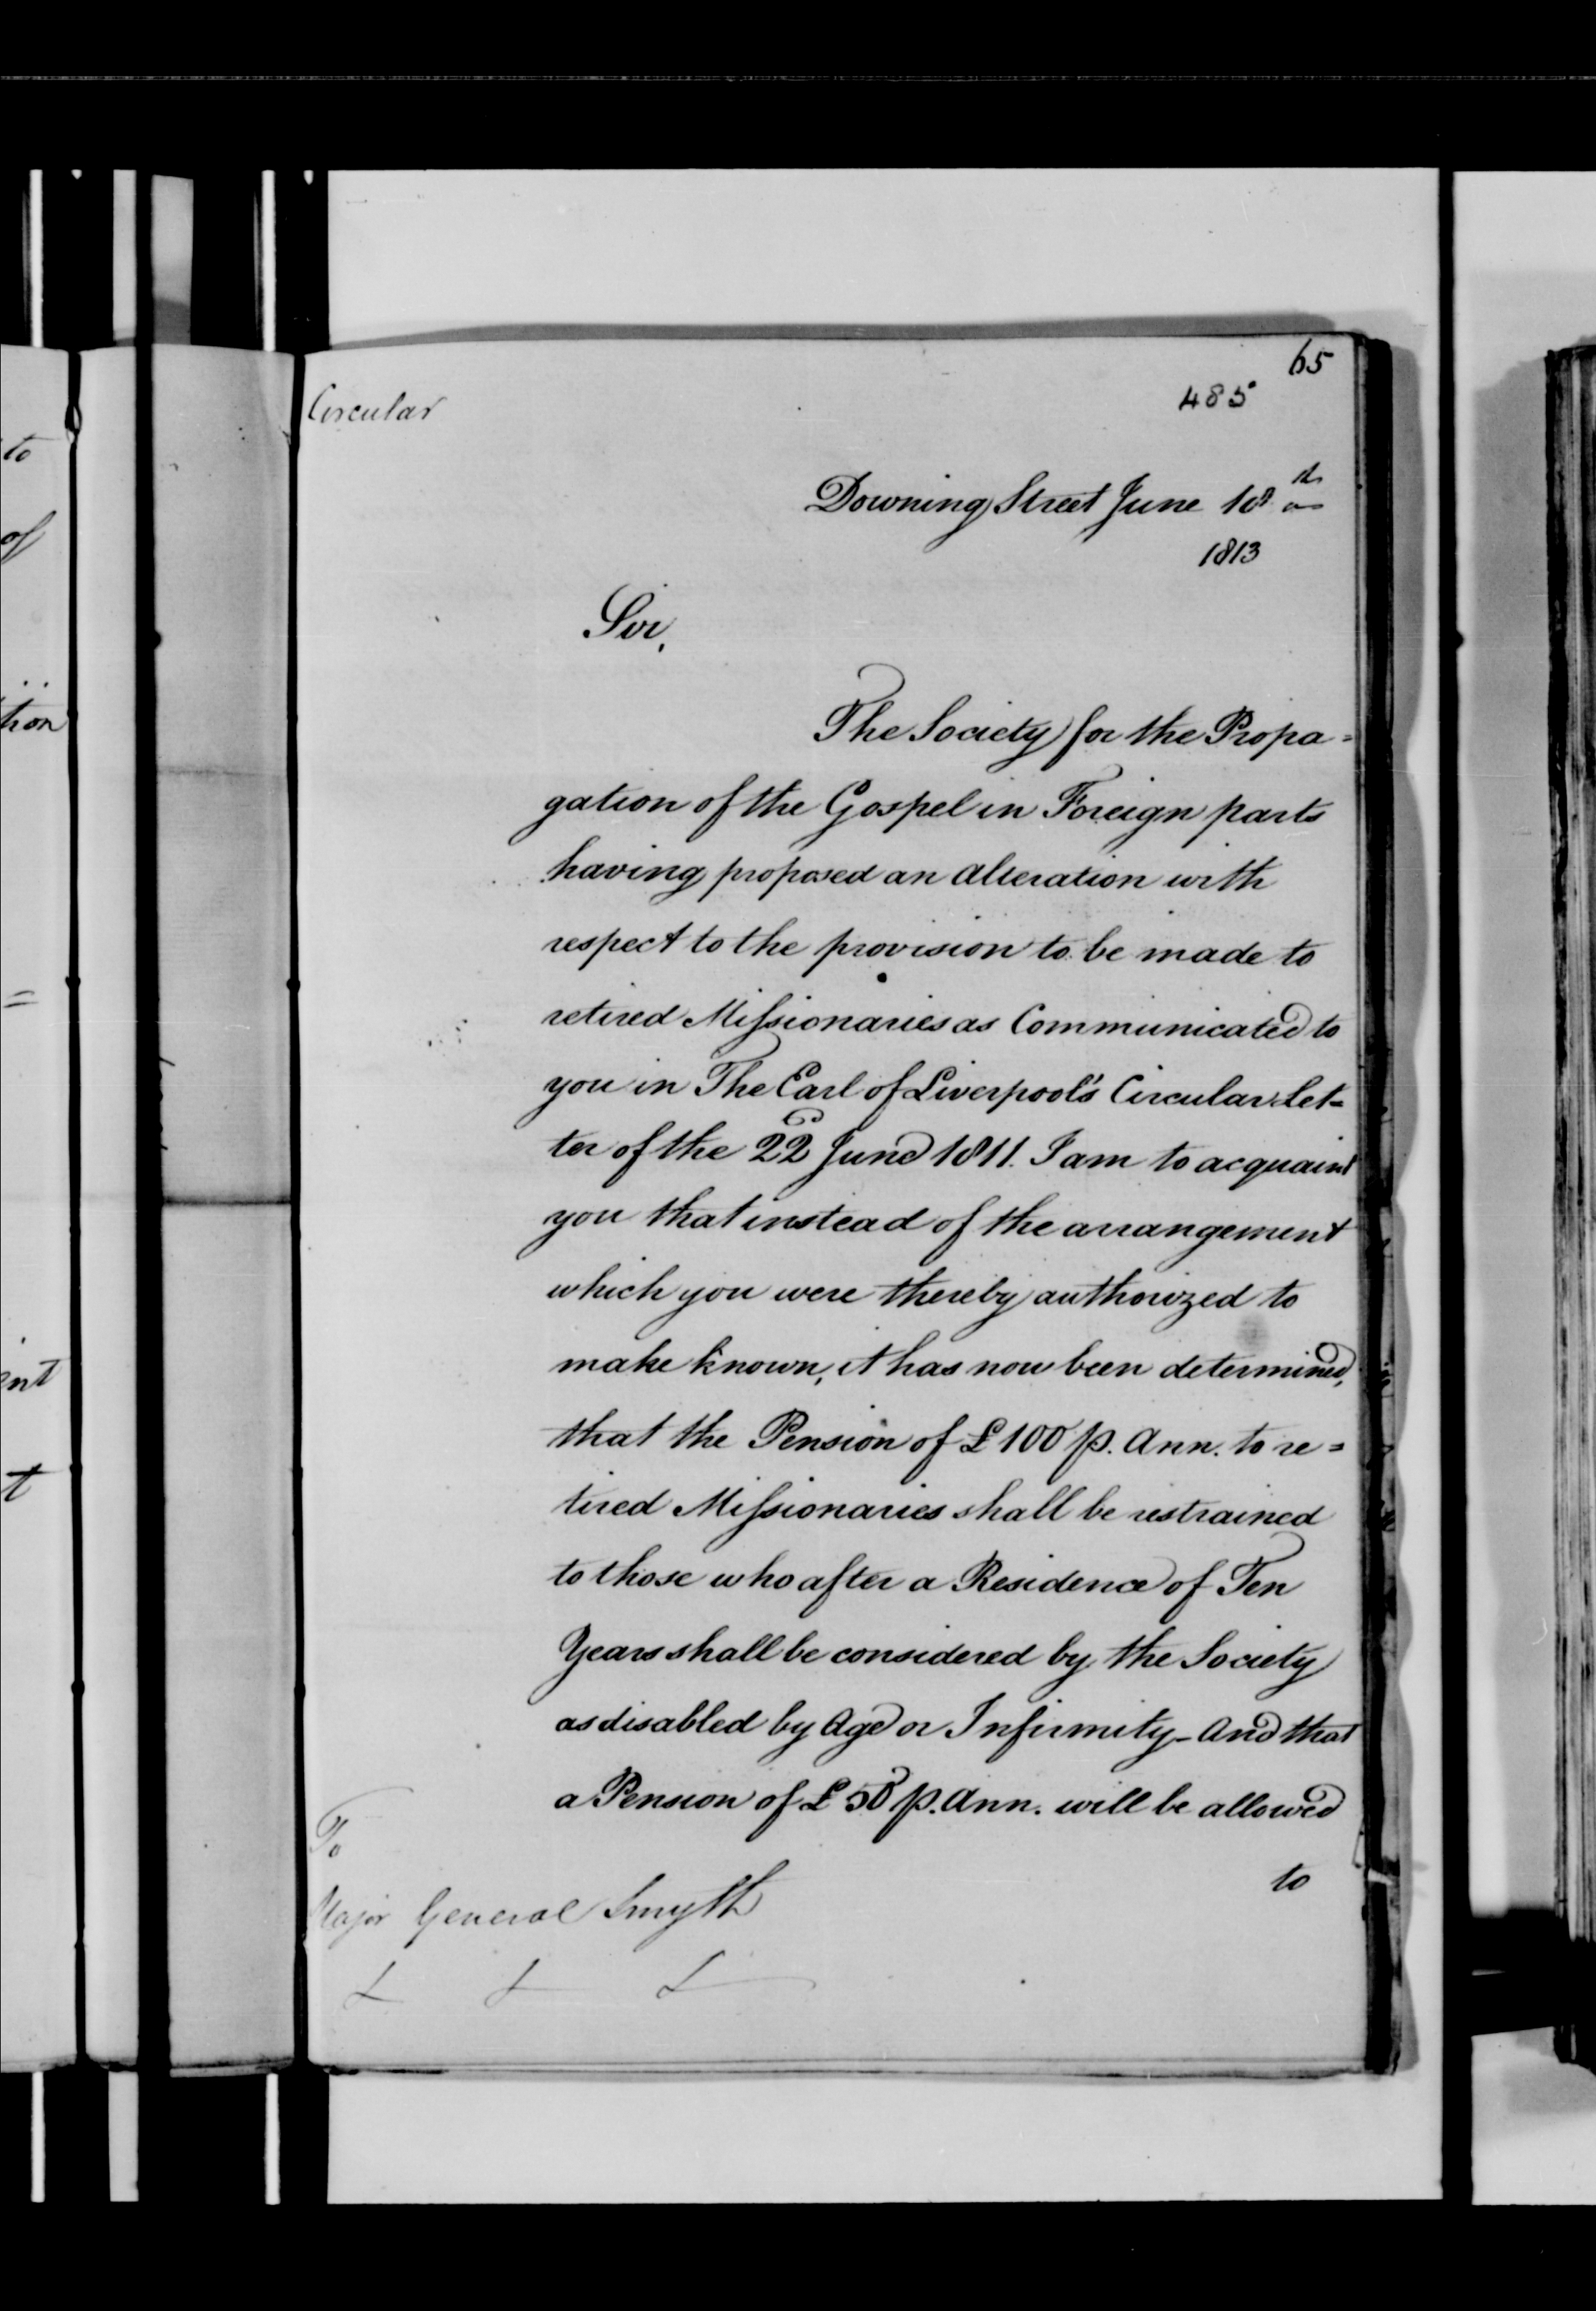 65
485
Circular
Downing Street June 18th
1813
Sir,
The Society for the Propa=
gation of the Gospel in Foreign parts
having proposed an alteration with
respect to the provision to be made to
retired Missionaries as Communicated to
you in The Earl of Liverpool's Circular Let=
ter of the 22d June 1811. I am to acquaint
you that instead of the arrangement
which you were thereby authorized to
make known, it has now been determined,
that the Pension of £100 p. Ann. to re=
tired Missionaries shall be restrained
to those who after a Residence of Ten
Years shall be considered by the Society
as disabled by Age or Infirmity_ And that
a Pension of £50 p. Ann. will be allowed
to
To
Major General Smyth
& & &